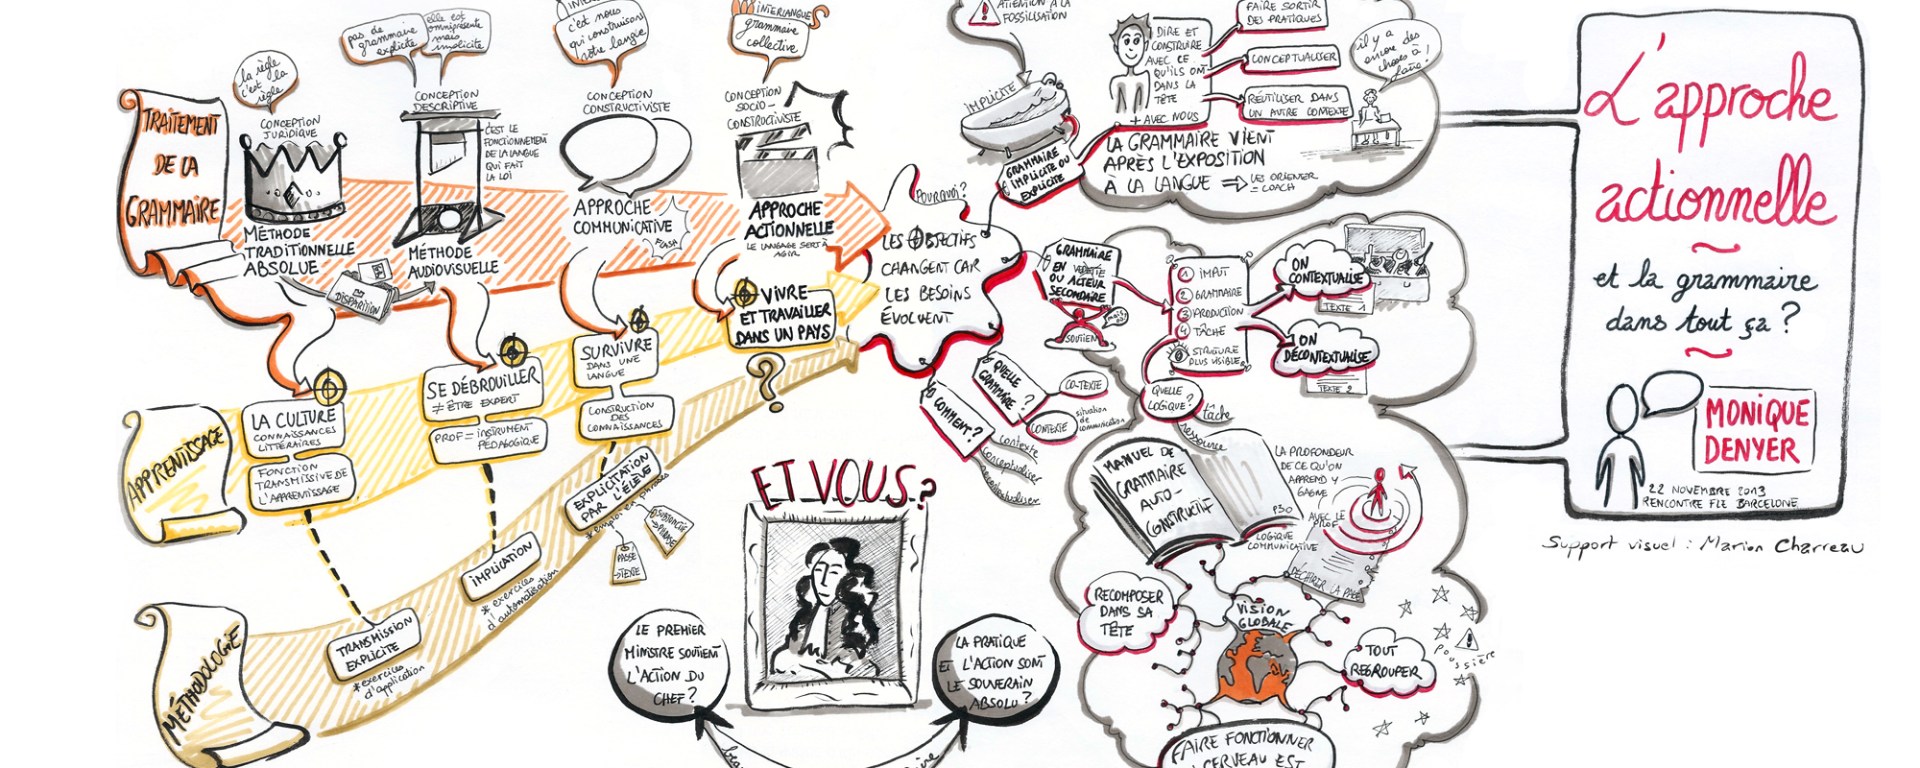 TRAITEMENT
DE LA
GRAMMAIRE
la règle
c'est la
règle
CONCEPTION
JURIDIQUE
MÉTHODE
TRADITIONNELLE
ABSOLUE
DISPARITION
pas de
grammaire
explicite
elle est
omniprésente
mais
implicite
CONCEPTION
DESCRIPTIVE
C'EST LE
FONCTIONNEMENT
DE LA LANGUE
QUI FAIT
LA LOI
MÉTHODE
AUDIOVISUELLE
c'est nous
qui construisons
notre langue
CONCEPTION
CONSTRUCTIVISTE
APPROCHE
COMMUNICATIVE
FLASH
INTERLANGUE
grammaire
collective
CONCEPTION
SOCIO-
CONSTRUCTIVISTE
APPROCHE
ACTIONNELLE
LE LANGAGE SERT À
AGIR
APPRENTISSAGE
LA CULTURE
CONNAISSANCES
LITTÉRAIRES
FONCTION
TRANSMISSIVE DE
L'APPRENTISSAGE
SE DÉBROUILLER
≠ ÊTRE EXPERT
PROF = INSTRUMENT
PÉDAGOGIQUE
SURVIVRE
DANS UNE
LANGUE
CONSTRUCTION
DES
CONNAISSANCES
VIVRE
ET TRAVAILLER
DANS UN PAYS
?
MÉTHODOLOGIE
TRANSMISSION
EXPLICITE
*exercices
d'application
IMPLICATION
*exercices
d'automatisation
EXPLICITATION
PAR L'ÉLÈVE
*emploi en phrases
PASSÉ
→TEXTE
SUBSTANCE
→PHRASE
LES OBJECTIFS
CHANGENT CAR
LES BESOINS
ÉVOLUENT
POURQUOI?
COMMENT?
contexte
conceptualiser
QUELLE
GRAMMAIRE?
CO-TEXTE
CONTEXTE
situation
de
communication
GRAMMAIRE
IMPLICITE OU
EXPLICITE
IMPLICITE
ATTENTION À LA
FOSSILISATION
DIRE ET
CONSTRUIRE
AVEC CE
QU'ILS ONT
DANS LA
TÊTE
+ AVEC NOUS
FAIRE SORTIR
DES PRATIQUES
CONCEPTUALISER
RÉUTILISER DANS
UN AUTRE CONTEXTE
il y a
encore des
choses à
faire!
LA GRAMMAIRE VIENT
APRÈS L'EXPOSITION
À LA LANGUE ⇒ LES ORIENTER
= COACH
GRAMMAIRE
EN VEDETTE
OU ACTEUR
SECONDAIRE
SOUTIEN
1 INPUT
2 GRAMMAIRE
3 PRODUCTION
4 TÂCHE
STRUCTURE
PLUS VISIBLE
ON
CONTEXTUALISE
TEXTE 1
ON
DÉCONTEXTUALISE
TEXTE 2
QUELLE
LOGIQUE?
tâche
ressource
MANUEL DE
GRAMMAIRE
AUTO-
CONSTRUCTIF
P30
LOGIQUE
COMMUNICATIVE
LA PROFONDEUR
DE CE QU'ON
APPREND Y
GAGNE
AVEC LE
PROF
DÉCHIRER LA PAGE
RECOMPOSER
DANS SA
TÊTE
VISION
GLOBALE
TOUT
REGROUPER
poussière
FAIRE FONCTIONNER
CERVEAU EST
ET VOUS?
LE PREMIER
MINISTRE SOUTIENT
L'ACTION DU
CHEF?
LA PRATIQUE
ET L'ACTION SONT
LE SOUVERAIN
ABSOLU?
L'approche
actionnelle
et la grammaire
dans tout ça?
MONIQUE
DENYER
22 NOVEMBRE 2013
RENCONTRE FLE BARCELONE
Support visuel : Marion Charreau